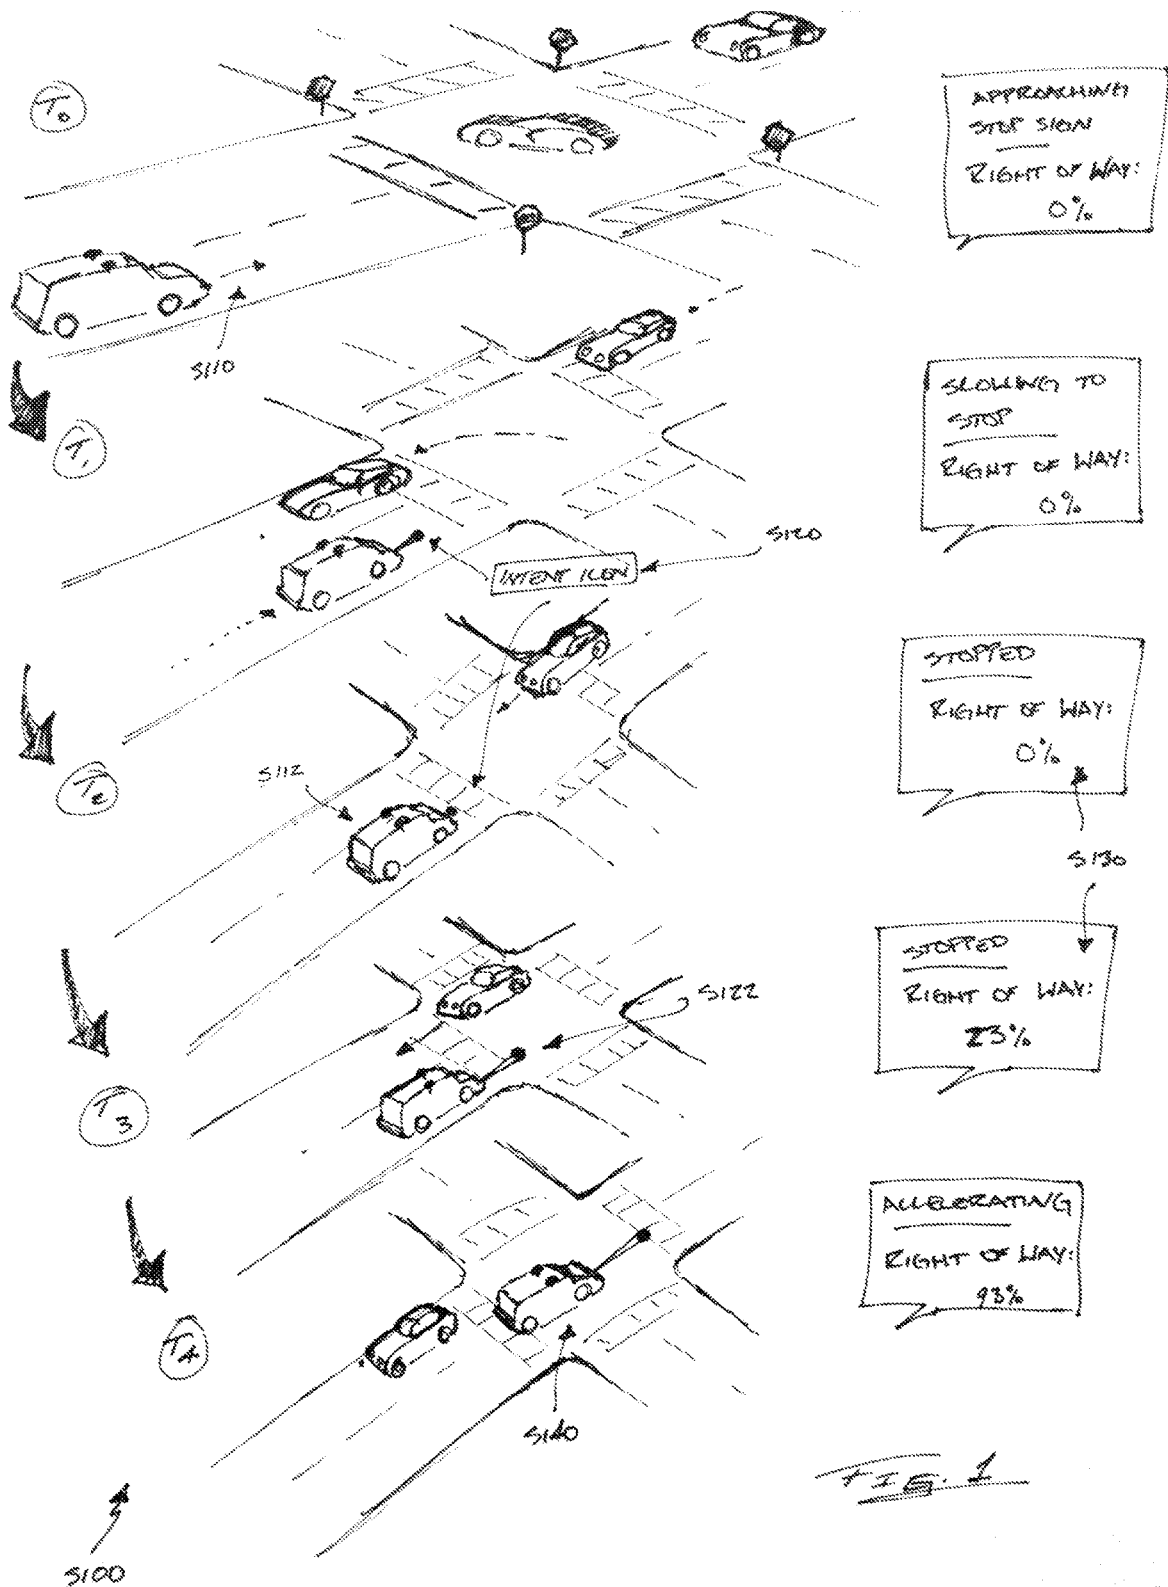 T0
APPROACHING
STOP SIGN
RIGHT OF WAY:
0%
S110
T1
SLOWING TO
STOP
RIGHT OF WAY:
0%
S120
INTENT ICON
T2
STOPPED
RIGHT OF WAY:
0%
S112
S130
STOPPED
RIGHT OF WAY:
23%
S122
T3
ACCELERATING
RIGHT OF WAY:
93%
T4
S140
FIG. 1
S100